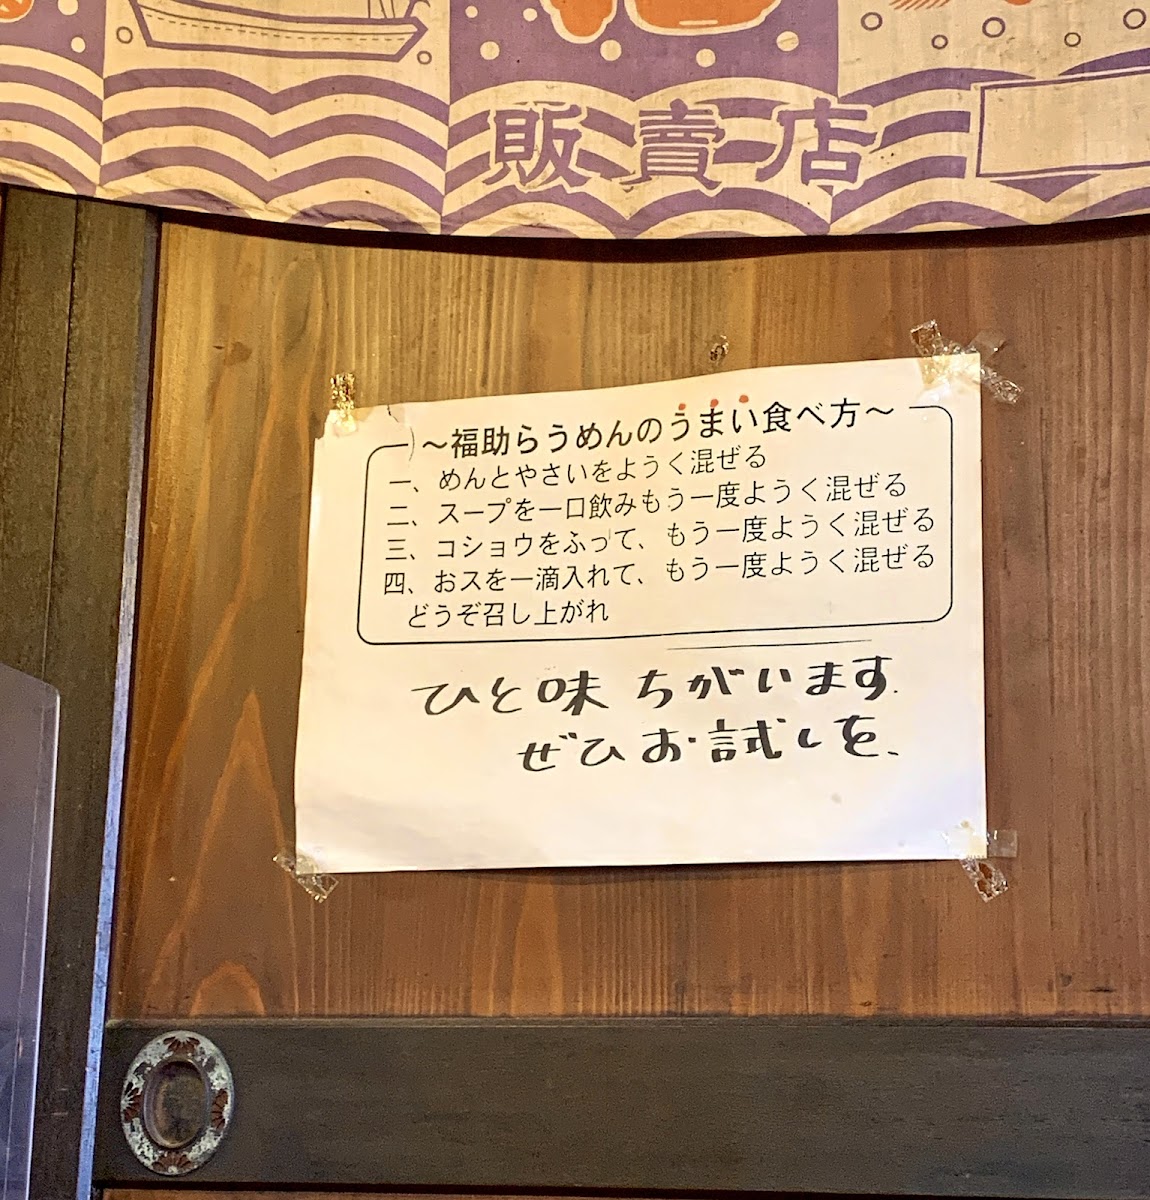 販賣店
～福助らうめんのうまい食べ方～
一、めんとやさいをようく混ぜる
二、スープを一口飲みもう一度ようく混ぜる
三、コショウをふって、もう一度ようく混ぜる
四、おスを一滴入れて、もう一度ようく混ぜる
どうぞ召し上がれ
ひと味 ちがいます.
ぜひお試しを、